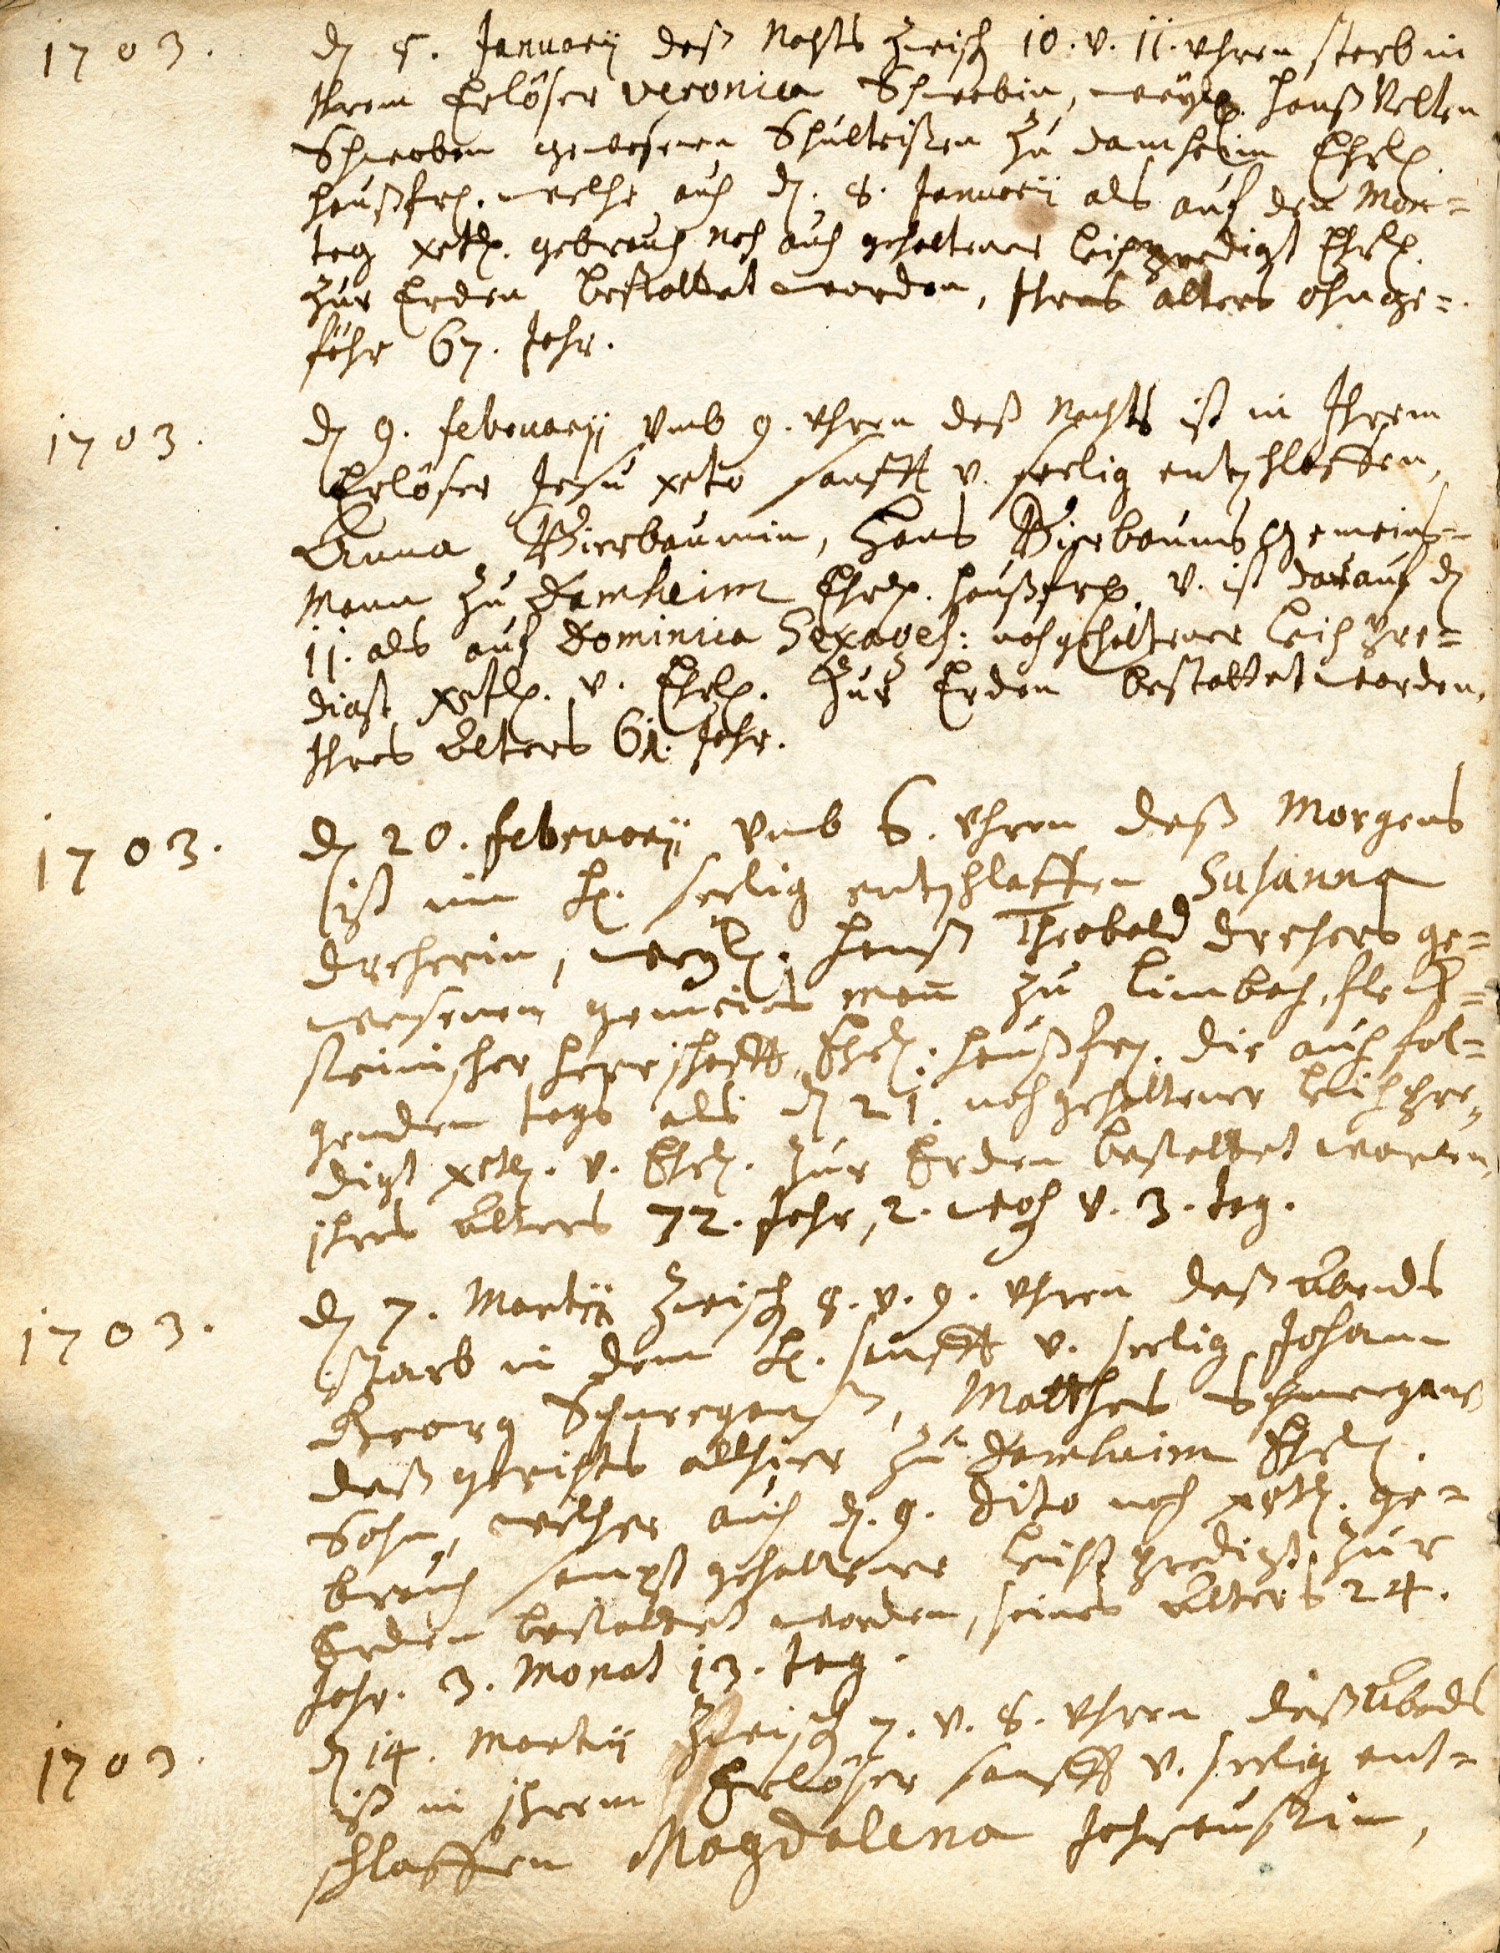 1703. dn 5. Januarij deß Nachts zwisch 10. v. 11. vhren starb in
Ihrem Erlöser Veronica Schwabin, weyl. Hanß Velten
Schwaben gewesenen Schulteißen zu Damheim Ehrl.
haußfr. welche auch d. 8. Januarij als auf den Mon=
tag xstl. gebrauch nach auch gehaltener leichpredigt Ehrl.
zur Erden bestattet worden, Ihres alters ohnge=
föhr 67. Jahr.
1703. dn 9. februarij vmb 9. vhren deß Nachts ist in Ihrem
Erlöser Jesu xsto sanfft v. seelig entschlaffen,
Anna Bierbaumin, Hans Bierbaums gemeins=
Mann zu Damheim Ehrl. haußfr. v. ist darauf dn
11. als auf Dominica Sexages: nach gehaltener leichpre=
digt xstl. v. Ehrl. zur Erden bestattet worden,
Ihres Alters 61. Jahr.
1703. dn 20. februarij vmb 6. vhren deß Morgens
ist im H. seelig entschlaffen Susanna
Dreherin, weyl. Hanß Theobald Drehers ge=
wesenen gemeins man zu Limbach, fleck=
steinischer herrschafft, Ehrl. haußfr. die auch fol=
genden tags als dn 21. nach gehaltener leichpre=
digt xstl. v. Ehrl. zur Erden bestattet worden,
ihres Alters 72. Jahr, 2. woch v. 3. tag.
1703. dn 7. Martij zwisch 8. v. 9. vhren deß Abends
starb in dem H. sanfft v. seelig Johann
Georg Schneegansß, Matthes Schneegans
deß gerichts allhier zu Damheim Ehrl.
Sohn, welcher auch d. 9. dito nach xstl. ge=
brauch sampt gehaltener leichpredigt zur
Erden bestattet worden, seines Alters 24.
Jahr. 3. Monat 13. tag.
1703. dn 14. Martij zwisch 7. v. 8. vhren deß Abends
ist in ihrem Erlöser sanfft v. seelig ent=
schlaffen Magdalena Jahraußin,